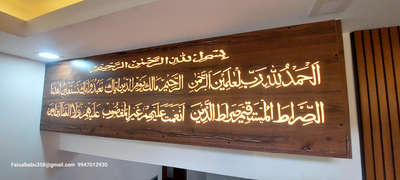 بسم الله الرحمن الرحيم
الحمد لله رب العلمين الرحمن الرحيم ملك يوم الدين اياك نعبد واياك نستعين اهدنا
الصراط المستقيم صراط الذين انعمت عليهم غير المغضوب عليهم ولا الضالين
Faisalbabu358@gmail.com 9947012930